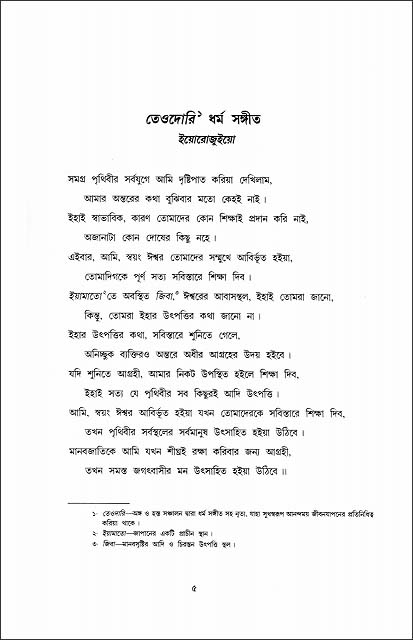 তেওদোরি১ ধর্ম সঙ্গীত
ইয়োরোজুইয়ো
সমগ্র পৃথিবীর সর্বযুগে আমি দৃষ্টিপাত করিয়া দেখিলাম,
আমার অন্তরের কথা বুঝিবার মতো কেহই নাই ।
ইহাই স্বাভাবিক, কারণ তোমাদের কোন শিক্ষাই প্রদান করি নাই,
অজানাটা কোন দোষের কিছু নহে ।
এইবার, আমি, স্বয়ং ঈশ্বর তোমাদের সম্মুখে আবির্ভূত হইয়া,
তোমাদিগকে পূর্ণ সত্য সবিস্তারে শিক্ষা দিব ।
ইয়ামাতো২তে অবস্থিত জিবা,৩ ঈশ্বরের আবাসস্থল, ইহাই তোমরা জানো,
কিন্তু, তোমরা ইহার উৎপত্তির কথা জানো না ।
ইহার উৎপত্তির কথা, সবিস্তারে শুনিতে গেলে,
অনিচ্ছুক ব্যক্তিরও অন্তরে অধীর আগ্রহের উদয় হইবে ।
যদি শুনিতে আগ্রহী, আমার নিকট উপস্থিত হইলে শিক্ষা দিব,
ইহাই সত্য যে পৃথিবীর সব কিছুরই আদি উৎপত্তি ।
আমি, স্বয়ং ঈশ্বর আবির্ভূত হইয়া যখন তোমাদেরকে সবিস্তারে শিক্ষা দিব,
তখন পৃথিবীর সর্বস্থলের সর্বমানুষ উৎসাহিত হইয়া উঠিবে ।
মানবজাতিকে আমি যখন শীঘ্রই রক্ষা করিবার জন্য আগ্রহী,
তখন সমস্ত জগৎবাসীর মন উৎসাহিত হইয়া উঠিবে ॥
১· তেওদোরি—অঙ্গ ও হস্ত সঞ্চালন দ্বারা ধর্ম সঙ্গীত সহ নৃত্য, যাহা সুখস্বরূপ আনন্দময় জীবনযাপনের প্রতিনিধিত্ব
করিয়া থাকে ।
২· ইয়ামাতো—জাপানের একটি প্রাচীন স্থান ।
৩· জিবা—মানবসৃষ্টির আদি ও চিরন্তন উৎপত্তি স্থল ।
৫